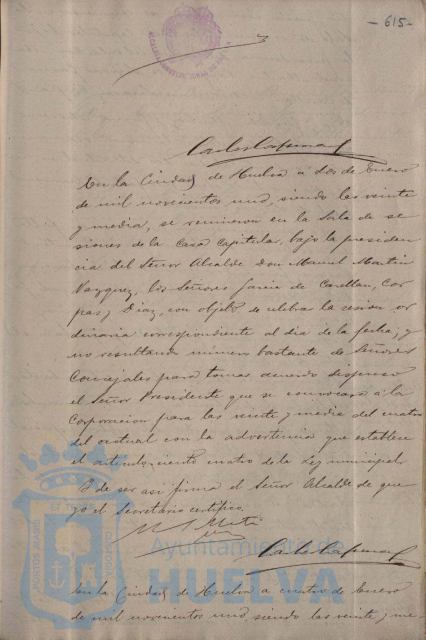 - 615 -
En la Ciudad de Huelva á dos de Enero
de mil novecientos uno, siendo las veinte
y media, se reunieron en la Sala de se
siones de la Casa Capitular, bajo la presiden
cia del Señor Alcalde Don Manuel Martin
Vazquez, los Señores Garcia de Castellan, Cor
pas, y Diaz, con objeto de celebrar la sesion or
dinaria correspondiente al dia de la fecha; y
no resultando numero bastante de Señores
Concejales para tomar acuerdo dispuso
el Señor Presidente que se convocase á la
Corporacion para las veinte y media del cuatro
del actual con la advertencia que establece
el articulo ciento cuatro de la Ley municipal.
Y de ser asi firma el Señor Alcalde de que
yo el Secretario certifico.
Ayuntamiento de
HUELVA
En la Ciudad de Huelva a cuatro de Enero
de mil novecientos uno siendo las veinte y me